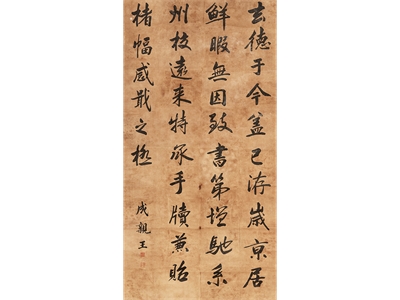 去德于今盖已洊岁京居
鲜暇無因致書第增馳系
州校遠来特承手牘蒹貽
楮幅感戢之極
成親王